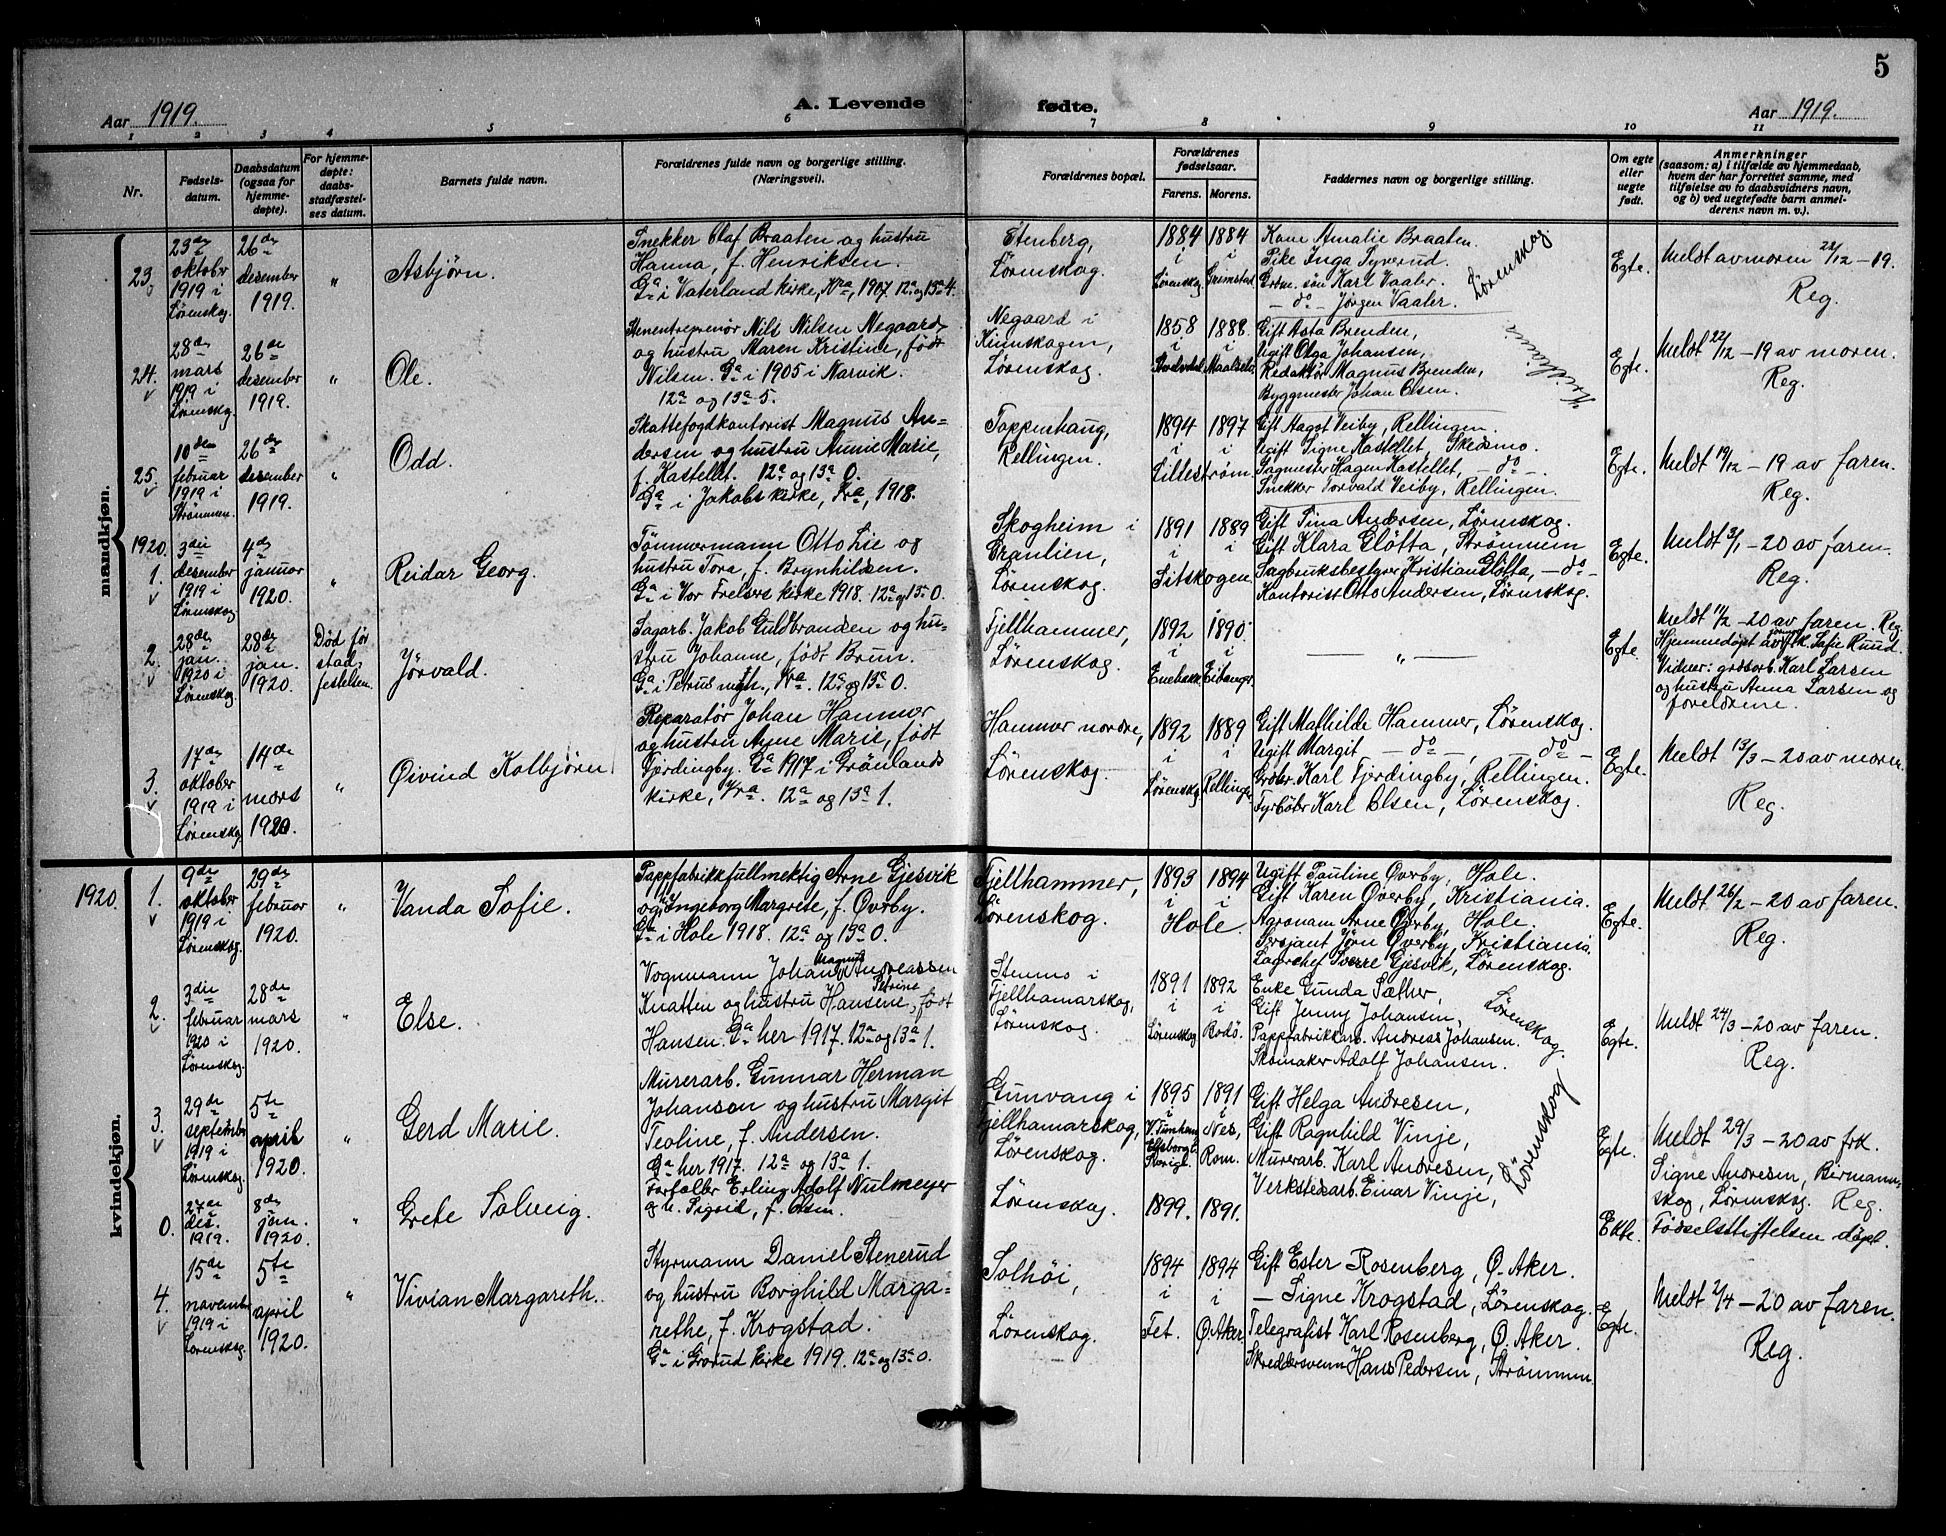 5
Aar 1919.
A. Levende
fødte.
Aar 1919.
1 2 3 4 5 6 7 8 9 10 11
Nr.
Fødsels-
datum.
Daabsdatum
(ogsaa for
hjemme-
døpte).
For hjemme-
døpte:
daabs-
stadfæstel-
ses datum.
Barnets fulde navn.
Forældrenes fulde navn og borgerlige stilling.
(Næringsvei).
Forældrenes bopæl.
Forældrenes
fødselsaar.
Farens. Morens.
Faddernes navn og borgerlige stilling.
Om egte
eller
uegte
født.
Anmerkninger
(saasom: a) i tilfælde av hjemmedaab,
hvem der har forrettet samme, med
tilføielse av to daabsvidners navn,
og b) ved uegtefødte barn anmel-
derens navn m. v.).
mandkjøn.
23.
23de
oktober
1919 i
Lørenskog.
26de
desember
1919.
"
Asbjørn.
Snekker Olaf Braaten og hustru
Hanna, f. Henriksen.
Ga i Vaterland kirke, Kra, 1907. 12a og 13a 4.
Stenberg,
Lørenskog.
1884 i Lørenskog.
1884 i Grimstad.
Kone Amalie Braaten.
Pike Inga Tyverud.
Grdm. søn Karl Vaaler.
— do — Jørgen Vaaler.
Lørenskog.
Egte.
Meldt av moren 22/12 – 19.
Reg.
24.
28de
mars
1919 i
Lørenskog.
26de
desember
1919.
"
Ole.
Stenentreprenør Nils Nilsen Negaard
og hustru Maren Kristine, født
Nilsen. Ga i 1905 i Narvik.
12a og 13a 5.
Negaard i
Kinnskogen,
Lørenskog.
1858 i
1888 i Maalselv
Gift Asta Brenden,
Ugift Olga Johansen,
Redaktør Magnus Brenden,
Byggmester Johan Olsen.
Kristiania
Egte.
Meldt 22/12 – 19 av moren.
Reg.
25.
10den
februar
1919 i
Strømmen.
26de
desember
1919.
"
Odd.
Skattefogdkontorist Magnus An-
dersen og hustru Aunie Marie,
f. Kastellet. 12a og 13a 0.
Ga i Jakobs kirke, Kra, 1918.
Toppenhaug,
Rellingen.
1894 i 1897 i
Lillestrøm.
Gift Aagot Veiby, Rellingen.
Ugift Signe Kastellet, Skedsmo.
Sagmester Hagen Kastellet, — do —.
Snekker Torvald Veiby, Rellingen.
Egte.
Meldt 19/12 – 19 av faren.
Reg.
1920.
1.
3die
desember
1919 i
Lørenskog
4de
januar
1920.
"
Reidar Georg.
Tømmermann Otto Lie og
hustru Tora, f. Brynhildsen.
Ga i Vor Frelsers kirke 1918. 12a og 13a 0.
Skogheim i
Granlien,
Lørenskog.
1891 i 1889 i
Sitskogen.
Gift Tina Andersen, Lørenskog.
Gift Klara Sløtta, Strømmen
Sagbruksbestyrer Kristian Sløtta, — do —
Kontorist Otto Andersen, Lørenskog.
Egte.
Meldt 3/1 – 20 av faren.
Reg.
2.
28de
jan.
1920 i
Lørenskog
28de
jan.
1920.
Død før
stad-
festelsen.
Jørvald.
Sagarb. Jakob Guldbrandsen og hu-
stru Johanne, født Brun.
Ga i Petrus mgh., Kra. 12a og 13a 0.
Fjellhammer,
Lørenskog.
1892 i Enebakk.
1890 i Eidanger.
— " —
Egte.
Meldt 11/2 – 20 av faren. Reg
Hjemmedøpt av frk. Sofie Ruud.
Vidner: grdsarb. Karl Larsen
og hustru Anna Larsen og
foreldrene.
3.
17de
oktober
1919 i
Lørenskog
14de
mars
1920.
"
Øivind Kolbjørn
Reparatør Johan Hammer
og hustru Agne Marie, født
Fjerdingby. Ga 1917 i Grønlands
kirke, Kra. 12a og 13a 1.
Hammer nordre,
Lørenskog.
1892 i Lørenskog.
1889 i Rellingen
Gift Mathilde Hammer, Lørenskog.
Ugift Margit — do —, do —
Grdbr. Karl Fjerdingby, Rellingen.
Fyrbøter Karl Olsen, Lørenskog.
Egte.
Meldt 13/3 – 20 av moren.
Reg.
kvindekjøn.
1920.
1.
9de
oktober
1919 i
Lørenskog.
29de
februar
1920.
"
Vanda Sofie.
Pappfabrikkfullmektig Arne Gjesvik
og h. Ingeborg Margrete, f. Øverby.
Ga i Hole 1918. 12a og 13a 0.
Fjellhammer,
Lørenskog.
1893 i 1894 i
Hole.
Ugift Pauline Øverby, Hole.
Gift Karen Øverby, Kristiania.
Agronom Arne Øverby, Hole.
Sersjant Jørn Øverby, Kristiania.
Lagerchef Sverre Gjesvik, Lørenskog.
Egte.
Meldt 26/2 – 20 av faren.
Reg.
2.
3die
februar
1920 i
Lørenskog.
28de
mars
1920.
"
Else.
Vognmann Johan Magnus Andreassen
Knatten og hustru Hansine Petrine, født
Hansen. Ga her 1917. 12a og 13a 1.
Stenmo i
Fjellhamarskog,
Lørenskog.
1891 i Lørenskog
1892 i Bodø.
Enke Gunda Sæther,
Gift Jenny Johansen,
Pappfabrikkarb. Andreas Johansen.
Skomaker Adolf Johansen.
Lørenskog.
Egte.
Meldt 24/3 – 20 av faren.
Reg.
3.
29de
september
1919 i
Lørenskog
5te
april
1920.
"
Gerd Marie.
Murerarb. Gunnar Herman
Johanson og hustru Margit
Teoline, f. Andersen.
Ga her 1917. 12a og 13a 1.
Gunvang i
Fjellhamarskog,
Lørenskog.
1895 i
1891 i Nes, Rom.
Gift Helga Andresen,
Gift Ragnhild Vinje,
Murerarb. Karl Andresen,
Verkstedarb. Einar Vinje,
Lørenskog
Egte.
Meldt 29/3 – 20 av frk.
Signe Andresen, Birmann-
skog, Lørenskog. Reg.
0.
27de
des.
1919.
8de
jan.
1920.
"
Grete Solveig.
Forfatter Erling Adolf Nulmeyer
og h. Sigrid, f. Olsen.
Lørenskog.
1899. 1891.
Ekte.
Fødselsstiftelsen døpt.
4.
15de
november
1919 i
Lørenskog
5te
april
1920.
"
Vivian Margareth.
Styrmann Daniel Stenerud
og hustru Borghild Marga-
rethe, f. Krogstad.
Ga i Grorud kirke 1919. 12a og 13a 0.
Solhøi,
Lørenskog.
1894 i Fet.
1894 i Ø. Aker.
Gift Ester Rosenberg, Ø. Aker.
— Signe Krogstad, Lørenskog.
Telegrafist Karl Rosenberg, Ø. Aker.
Skreddersvenn Hans Pedersen, Strømmen.
Egte.
Meldt 2/4 – 20 av faren.
Reg.